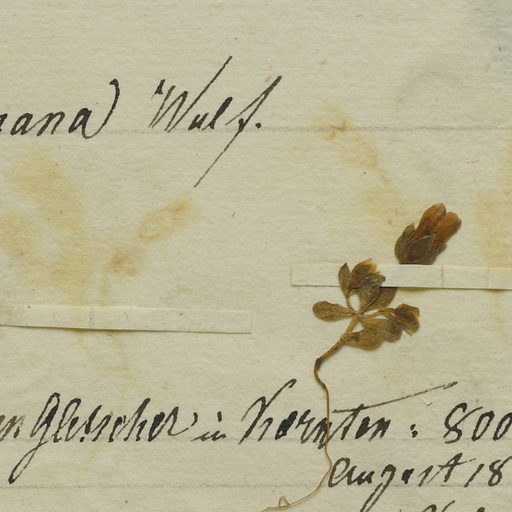 nana Wulf.
Gletscher in Kärnten : 800
August 18